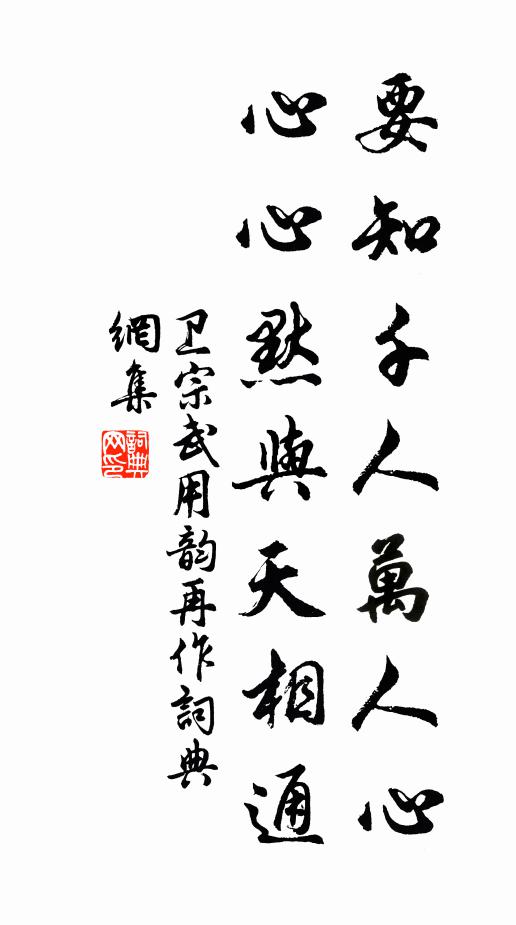 要知千人萬人心
心心默與天相通
卫宗武用韵再作詞典
網集
詞典
网印